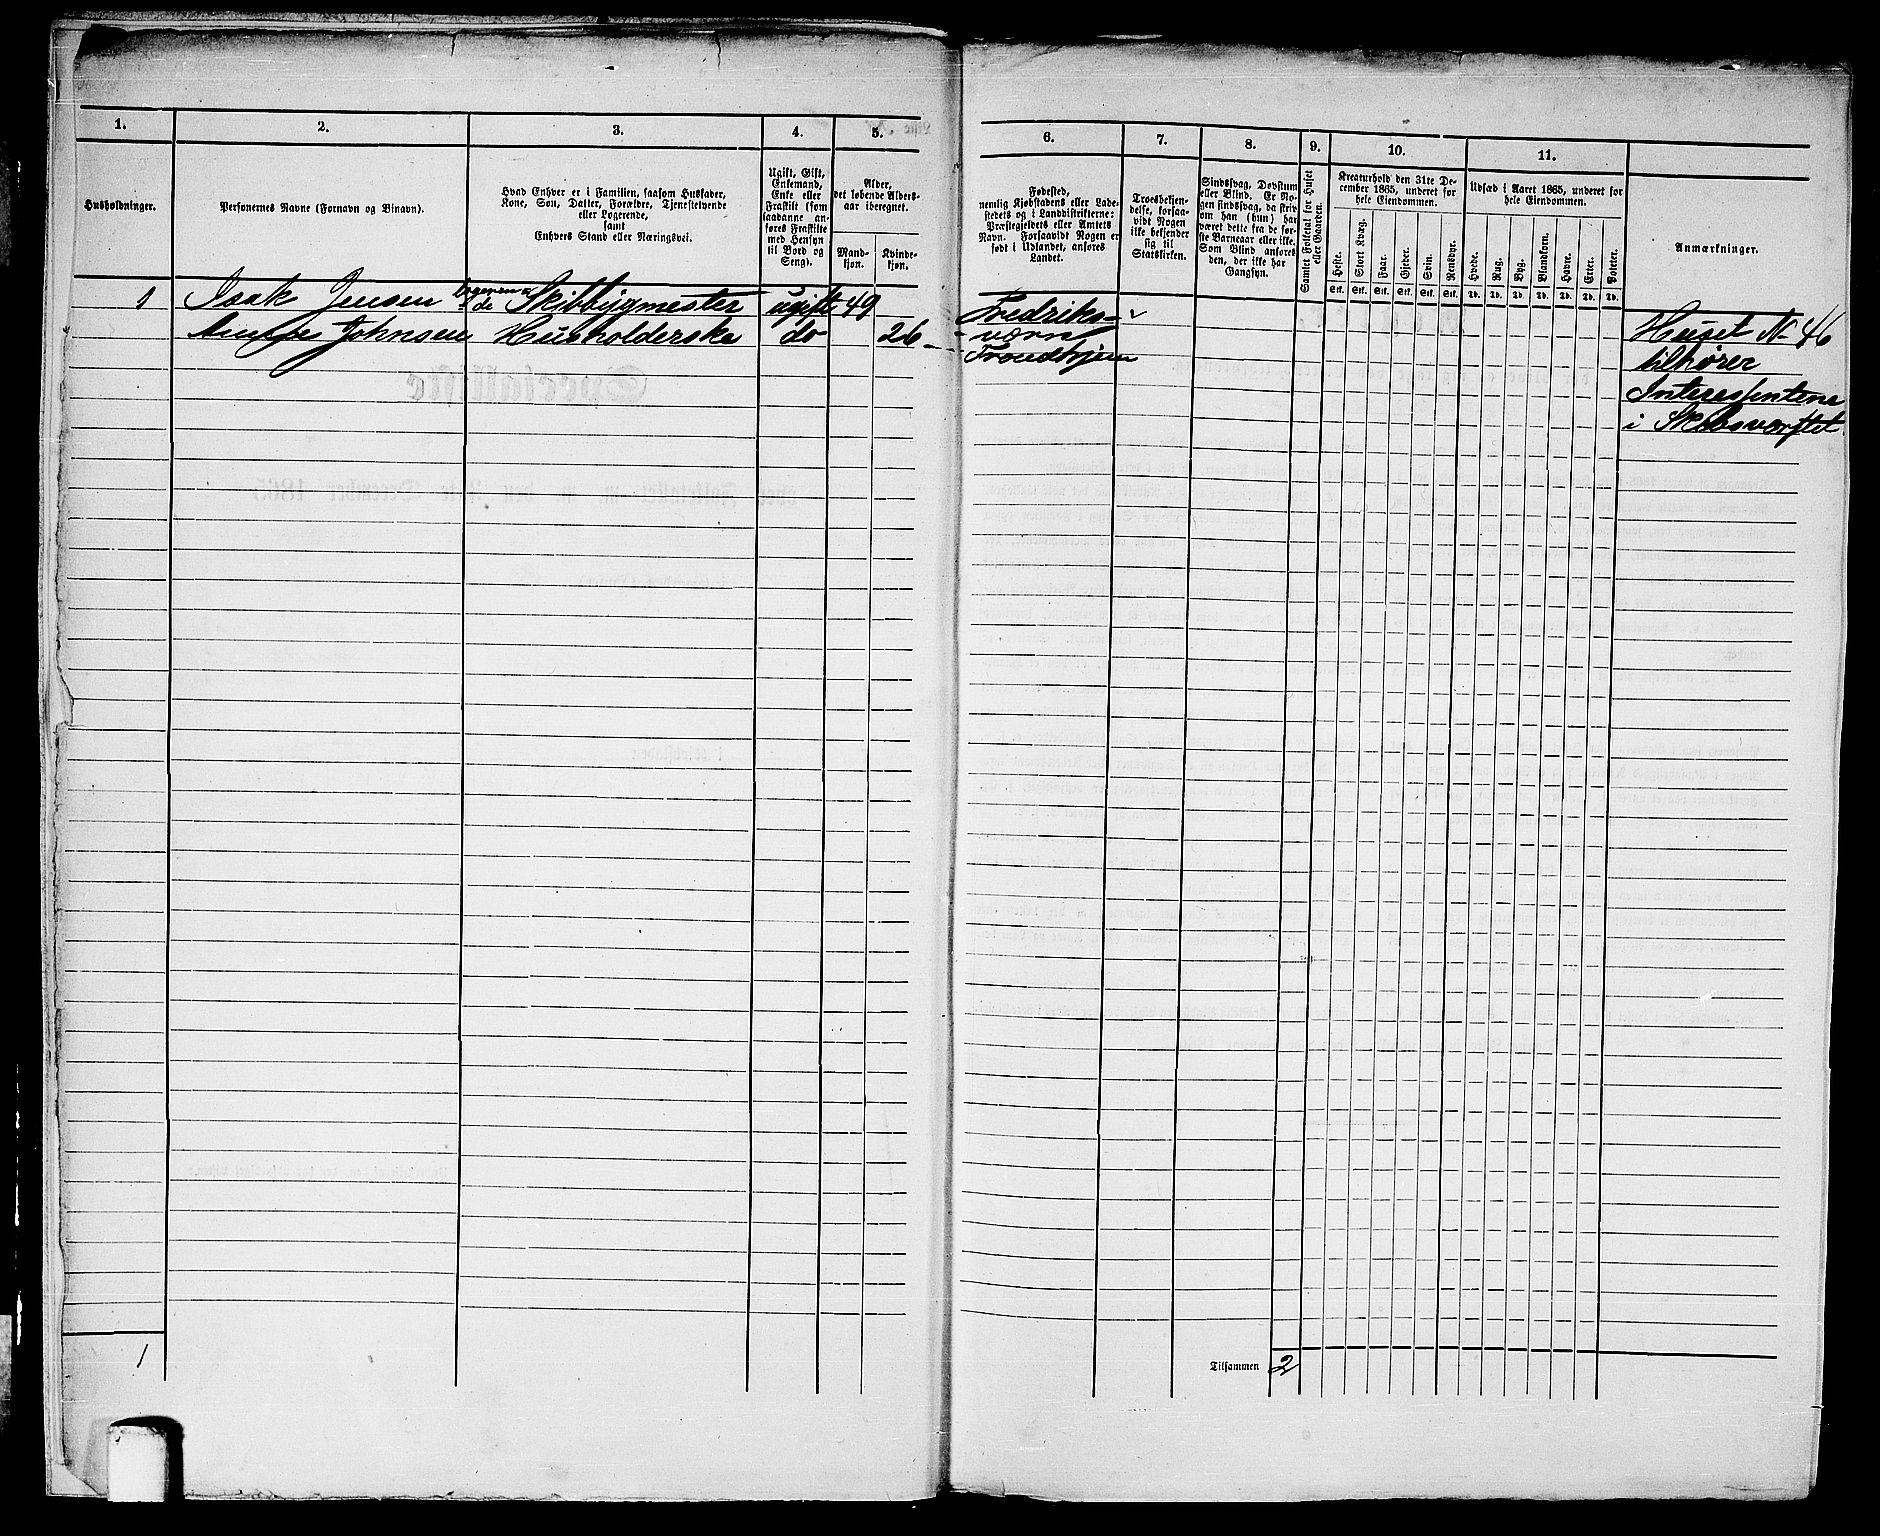 1. 2. 3. 4. 5. 6. 7. 8. 9. 10. 11.
Husholdninger.
Personernes Navne (Fornavn og Binavn).
Hvad Enhver er i Familien, saasom Husfader,
Kone, Søn, Datter, Forældre, Tjenestetyende
eller Logerende,
samt
Enhvers Stand eller Næringsvei.
Ugift, Gift,
Enkemand,
Enke eller
Fraskilt (som
saadanne an-
føres Fraskilte
med Hensyn
til Bord og
Seng).
Alder,
det løbende Alders-
aar iberegnet.
Mand-
kjøn.
Kvinde-
kjøn.
Fødested,
nemlig Kjøbstadens eller Lade-
stedets og i Landdistrikterne:
Præstegjeldets eller Amtets
Navn. Forsaavidt Nogen er
født i Udlandet, anføres
Landet.
Troesbekjen-
delse, forsaa-
vidt Nogen
ikke bekjender
sig til
Statskirken.
Sindssvag, Døvstum
eller Blind. Er No-
gen sindssvag, da skriv
om han (hun) har
været dette fra de før-
ste Barneaar eller ikke.
Som Blind anføres
den, der ikke har
Gangsyn.
Samlet Folketal for Huset
eller Gaarden.
Kreaturhold den 31te De-
cember 1865, underet for
hele Eiendommen.
Heste. Stort Kvæg. Faar. Gjeder. Svin. Rensdyr.
Stk. Stk. Stk. Stk. Stk. Stk.
Udsæd i Aaret 1865, underet for
hele Eiendommen.
Hvede. Rug. Byg. Blandkorn. Havre. Erter. Poteter.
Td. Td. Td. Td. Td. Td. Td.
Anmærkninger.
1 Isak Jensen Skibbygmester ugift 49 Fredriks-
-værn
Johnsen Husholderske do 26 Trondhjem
Huset No 46
tilhører
Interessentene
i Skibsværftet.
1
Tilsammen 2